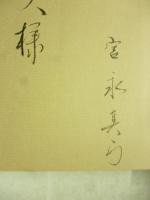 様
宮永真弓